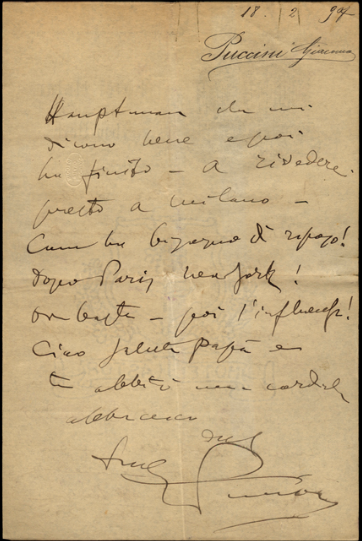 18. 2 97
Puccini Giacomo
Hauptman che mi
dicono bene e poi
ho finito – A rivederci
presto a Milano –
ho bisogno di riposo!
dopo Parigi New York!
ora basta – poi l'influenza!
Ciao saluta papà e
tu abbiti un cordiale
abbraccio
dal
tuo
Puccini